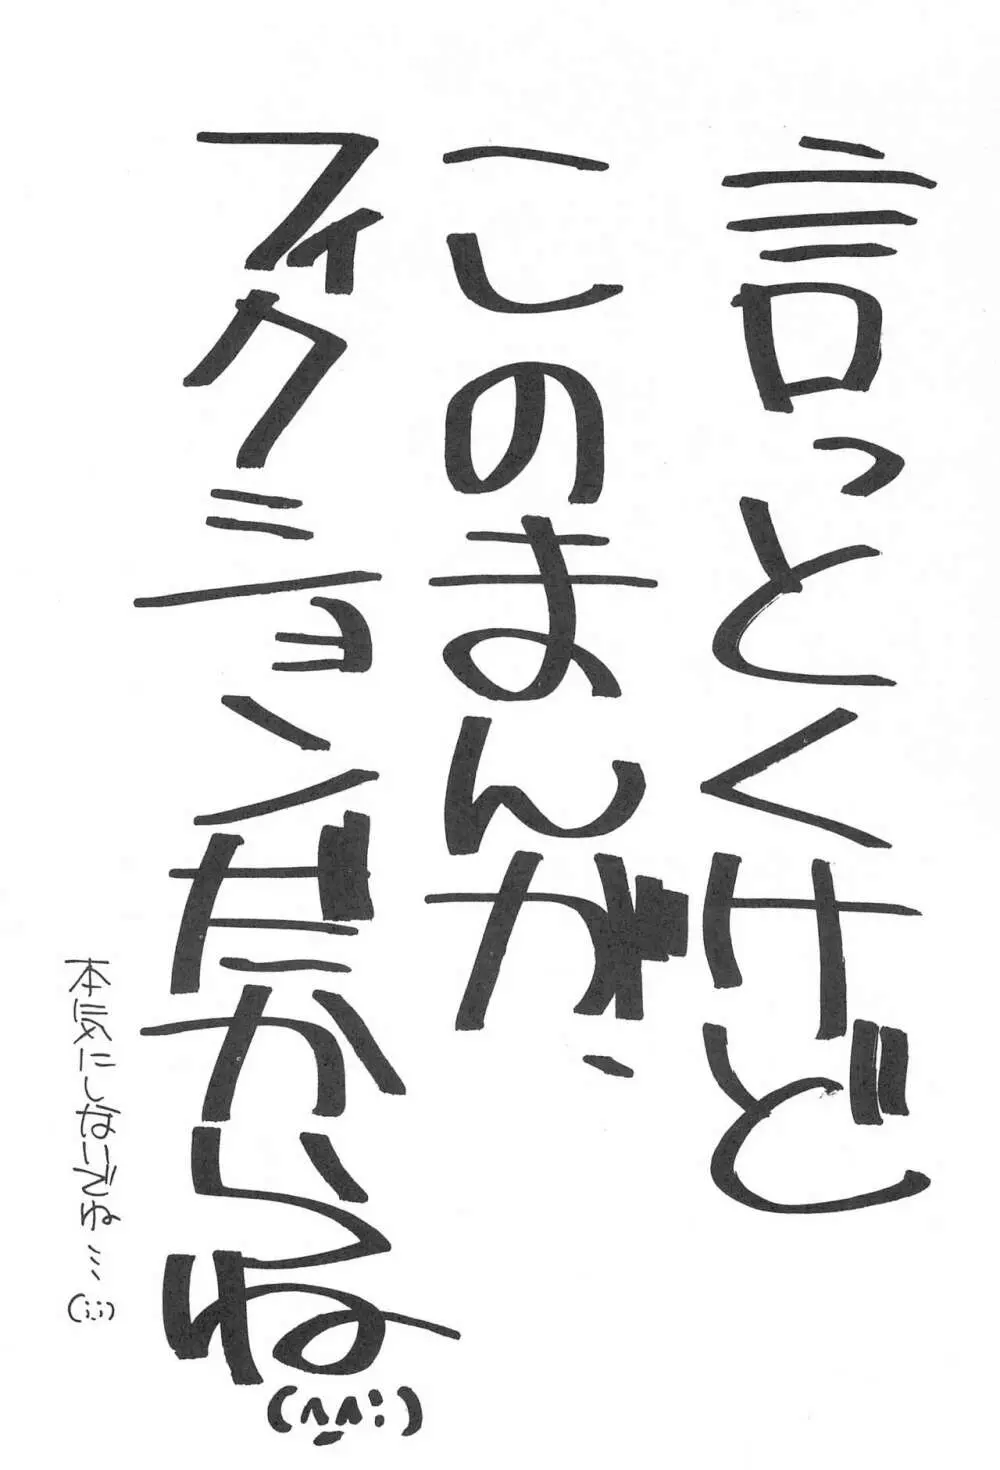 言っとくけど
このまんが、
フィクションだからね
(^_^;)
本気にしないでね…(;;;)